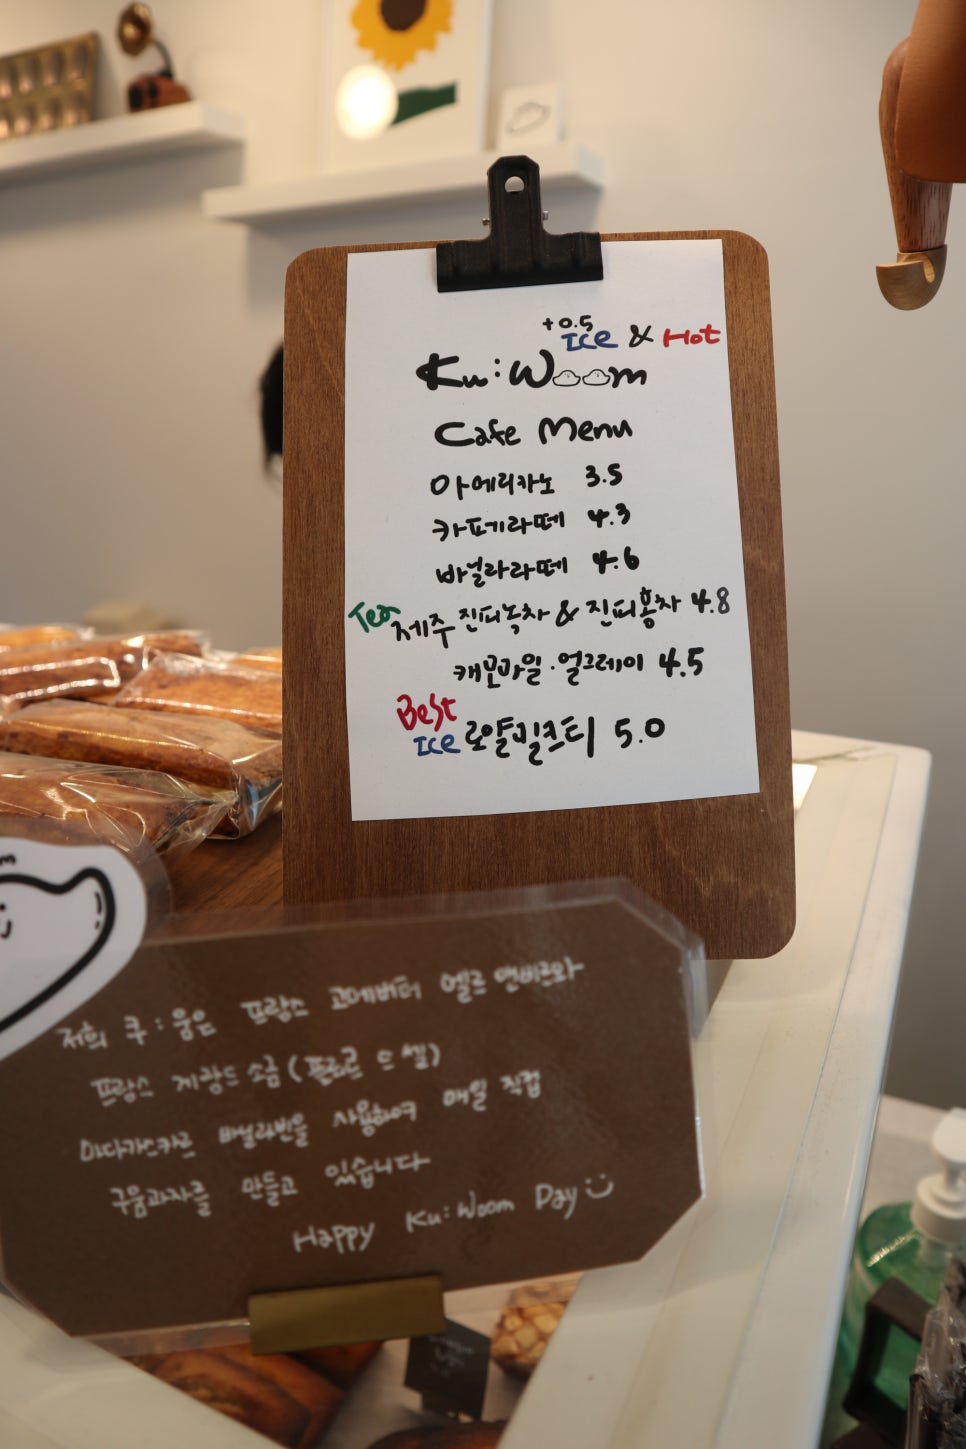 +0.5
Ice & Hot
Ku:Woom
Cafe Menu
아메리카노 3.5
카페라떼 4.3
바닐라라떼 4.6
Tea 제주 진피녹차 & 진피홍차 4.8
캐모마일·얼그레이 4.5
Best
Ice 로얄밀크티 5.0
저희 쿠:움은 프랑스 고메버터 엘르앤비르와
프랑스 게랑드 소금 (플뢰르 드 셀)
마다가스카르 바닐라빈을 사용하여 매일 직접
구움과자를 만들고 있습니다
Happy Ku:Woom Day